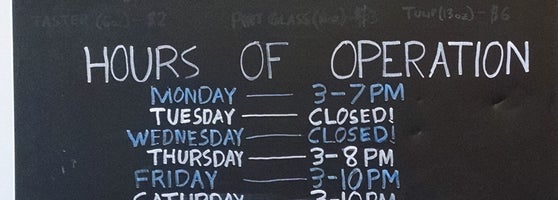 TASTER (6oz) - $2 PINT GLASS (16oz) - $3 TULIP (13oz) - $6
HOURS OF OPERATION
MONDAY — 3-7PM
TUESDAY — CLOSED!
WEDNESDAY — CLOSED!
THURSDAY — 3-8PM
FRIDAY — 3-10PM
SATURDAY — 3-10PM